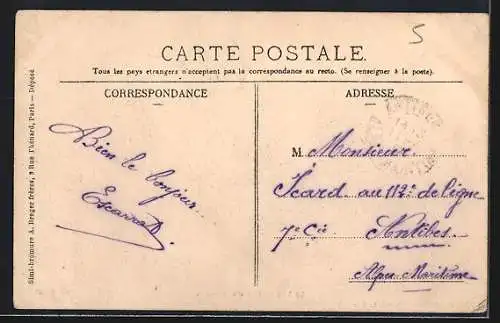 5
CARTE POSTALE.
Tous les pays étrangers n'acceptent pas la correspondance au recto. (Se renseigner à la poste).
CORRESPONDANCE
ADRESSE
Simili-bromure A. Breger frères, 9 Rue Thénard, Paris — Déposé
Bien le bonjour
Escarrat
ANTIBES
M. Monsieur
Icard au 112e de ligne
7e Cie Antibes
Alpes Maritime